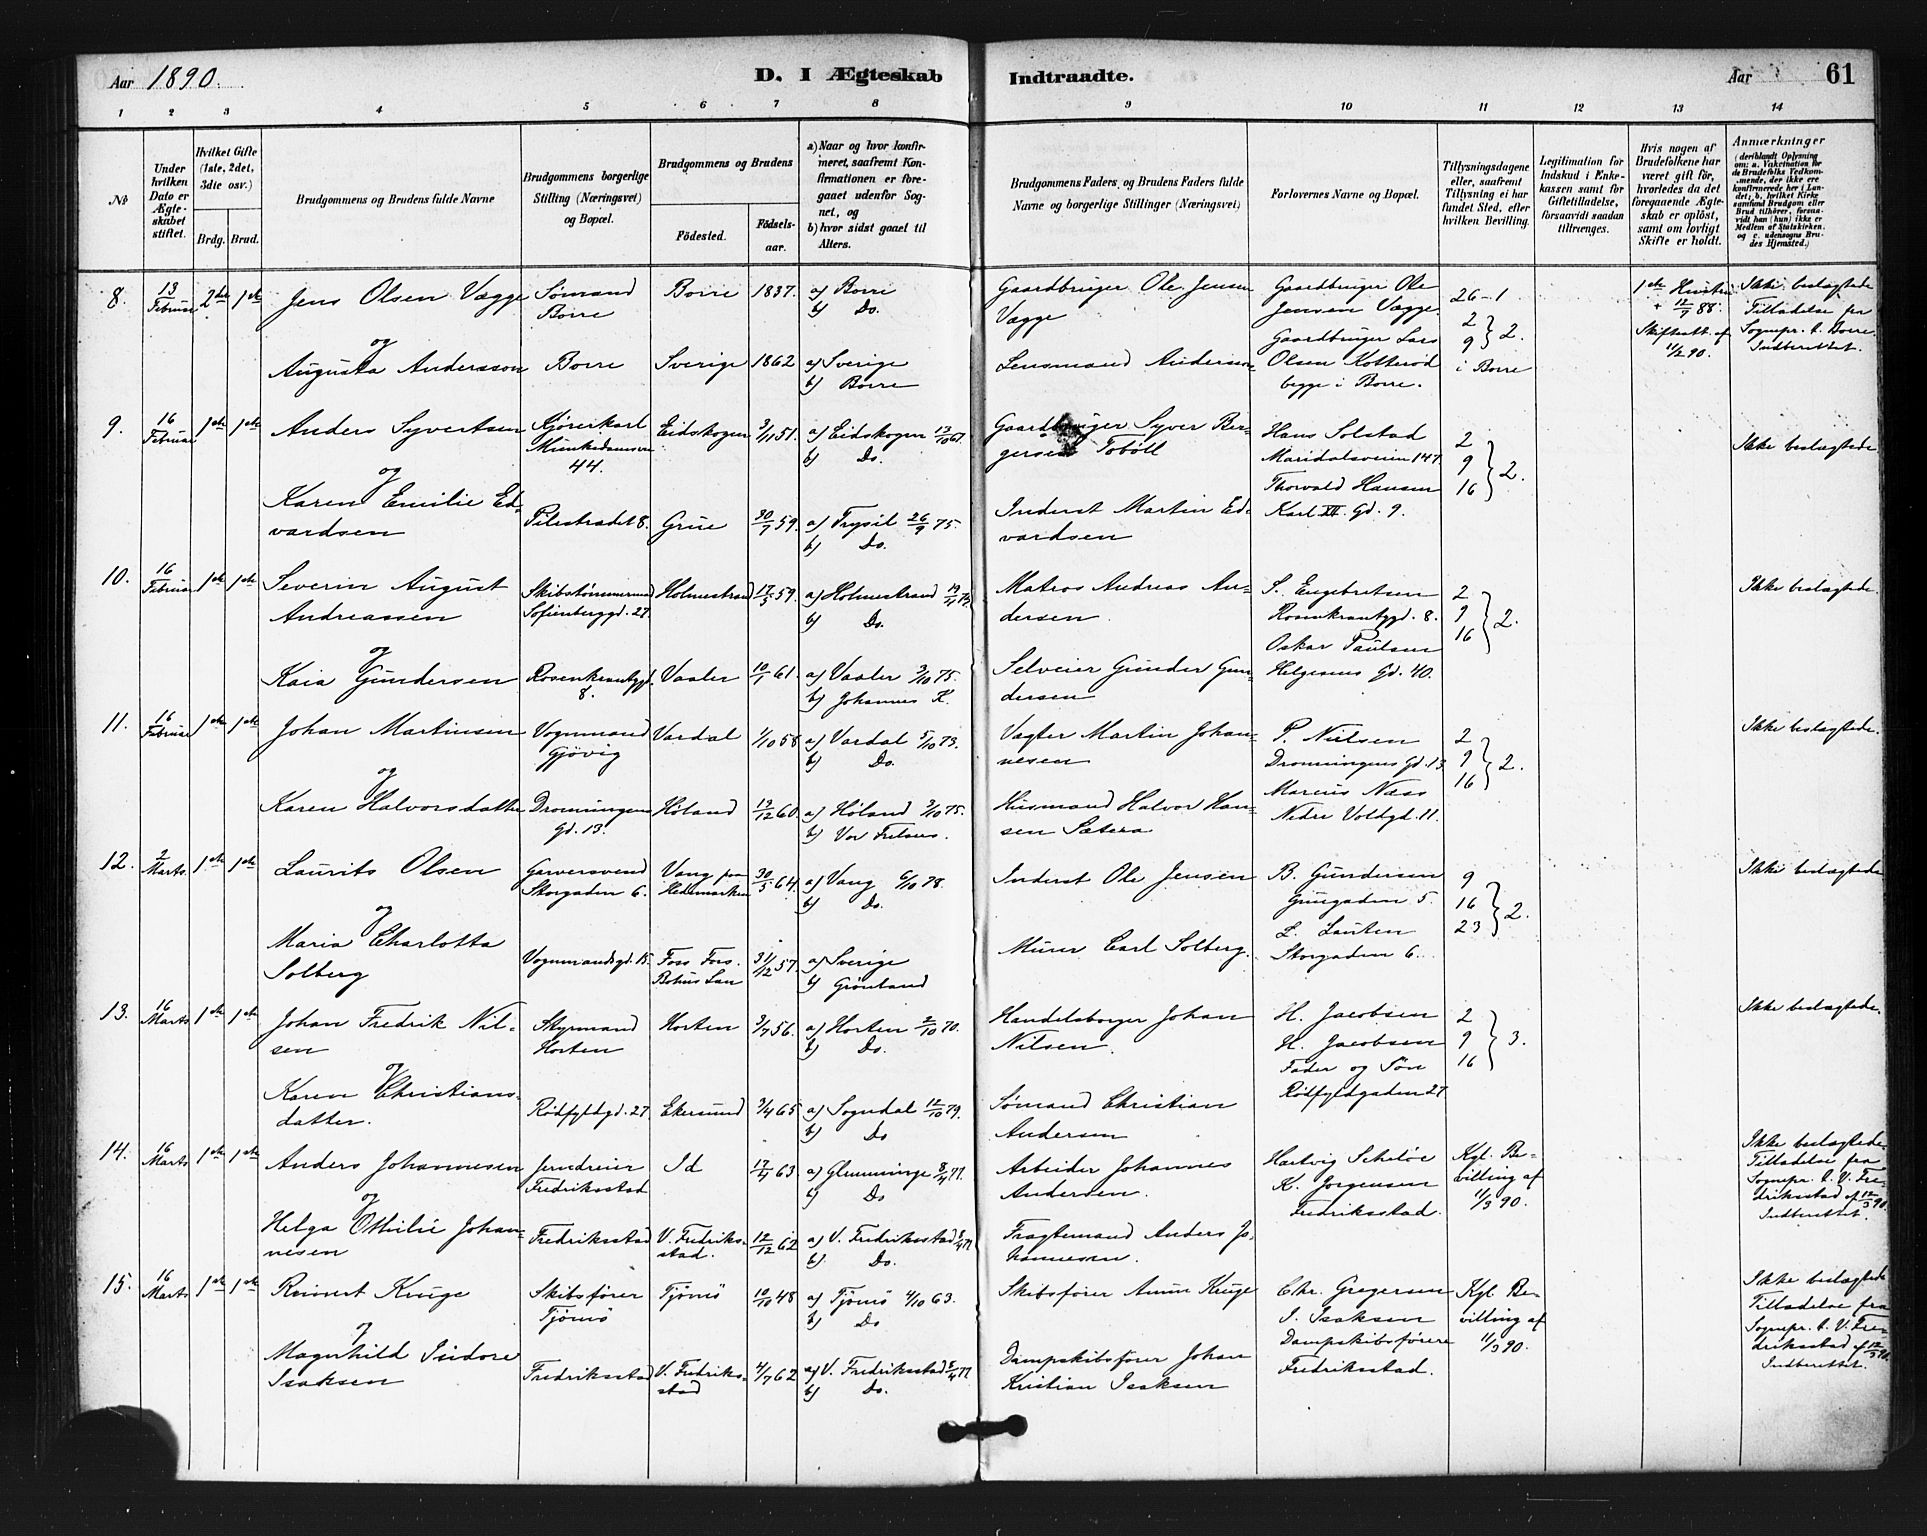 Aar 1890.
D. I Ægteskab Indtraadte.
Aar
61
1 2 3 4 5 6 7 8 9 10 11 12 13 14
Nr
Under hvilken Dato er Ægteskabet stiftet.
Hvilket Gifte (1ste, 2det, 3die osv.)
Brdg. Brud.
Brudgommens og Brudens fulde Navne
Brudgommens borgerlige Stilling (Næringsvei) og Bopæl.
Brudgommens og Brudens
Fødested. Fødsels-aar.
a) Naar og hvor konfirmeret, saafremt Konfirmationen er foregaaet udenfor Sognet, og
b) hvor sidst gaaet til Alters.
Brudgommens Faders, og Brudens Faders fulde Navne og borgerlige Stillinger (Næringsvei)
Forlovernes Navne og Bopæl.
Tillysningsdagene eller, saafremt Tillysning ei har fundet Sted, efter hvilken Bevilling.
Legitimation for Indskud i Enkekassen samt for Giftetilladelse, forsaavidt saadan tiltrænges.
Hvis nogen af Brudefolkene har været gift før, hvorledes da det foregaaende Ægteskab er opløst, samt om lovligt Skifte er holdt.
Anmærkninger
8. 13 Februar 2det 1ste Jens Olsen Vægge Sømand Borre Borre 1837. a) Borre b) Do. Gaardbruger Ole Jensen Vægge Gaardbruger Ole Jensen Vægge Gaardbruger Lars Olsen Kotterød begge i Borre. 26-1 2 9 } 2. i Borre 1ste Hustru + 12/7 88. Skifteatt. af 11/2 90. Ikke beslægtede Tilladelse fra Sognepr. t. Borre. Indberettet.
og
Augusta Andersson Borre Sverige 1862 a) Sverige b) Borre Lensmand Andersson
9. 16 Februar 1ste 1ste Anders Syvertsen Kjørerkarl Munkedamsvn 44. Eidskogen 3/11 51. a) Eidskogen 13/10 67. b) Do. Gaardbruger Syver Bergersen Tobøll Hans Solstad Maridalsveien 147. Thorvald Hansen Karl XII. Gd. 9. 2 9 16 } 2. Ikke beslægtede
og
Karen Emilie Edvardsen Pilestrædet 8. Grue 30/7 59. a) Trysil 26/9 75. b) Do. Inderst Martin Edvardsen
10. 16 Februar 1ste 1ste Severin August Andreassen Skibstømmermand Sofienberggd. 27. Holmestrand 17/5 59. a) Holmestrand b) Do. Matros Andreas Andersen. S. Engebretsen Rosenkrantzgd. 8. Oskar Paulsen Helgesens Gd. 40. 2 9 16 } 2. Ikke beslægtede.
og
Kaia Gundersen Rosenkrantzgd. 8. Vaaler 10/1 61. a) Vaaler 3/10 75. b) Johannes K. Selveier Gunder Gundersen
11. 16 Februar 1ste 1ste Johan Martinsen Vognmand Gjøvig Vardal 1/10 58 a) Vardal 5/10 73. b) Do. Vagter Martin Johannesen P. Nielsen Dronningens Gd. 13 Marius Næss Nedre Voldgd. 11. 2 9 16 } 2. Ikke beslægtede.
og
Karen Halvorsdatter Dronningens Gd. 13. Høland 13/12 60. a) Høland 3/10 75. b) Vor Frelsers. Husmand Halvor Hansen Sætera
12. 2 Marts 1ste 1ste Laurits Olsen Garversvend Storgaden 6. Vang paa Hedemarken 30/5 64. a) Vang 6/10 78. b) Do. Inderst Ole Jensen B. Gundersen Grüngaden 5. L. Lauten Storgaden 6. 9 16 23 } 2. Ikke beslægtede.
og
Maria Charlotta Solberg Vognmandsgd. 15. Foss Fors. Bohus Län 31/12 57. a) Sverige b) Grønland Murer Carl Solberg.
13. 16 Marts 1ste 1ste Johan Fredrik Nilsen Styrmand Horten Horten 3/7 56. a) Horten 2/10 70. b) Do. Handelsborger Johan Nilsen. H. Jacobsen H. Jacobsen Fader og Søn Rødfyldgaden 27 2 9 16 } 3. Ikke beslægtede.
og
Karen Christiansdatter. Rødfyldgd. 27. Ekersund 3/4 65 a) Sogndal 12/10 79. b) Do Sømand Christian Andersen
14. 16 Marts 1ste 1ste Anders Johannesen Jerndreier Fredriksstad Id 17/4 63 a) Glemminge 8/4 77. b) Do Arbeider Johannes Andersen. Hartvig Scheløe K. Jørgensen Fredriksstad. Kgl. Bevilling af 11/3 90. Ikke beslægtede. Tilladelse fra Sognepr. t. V. Fredriksstad af 12/3 90. Indberettet.
og
Helga Othilie Johannesen Fredriksstad V. Fredriksstad. 12/12 62 a) V. Fredriksstad 8/4 77 b) Do. Fragtemand Anders Johannesen.
15. 16 Marts 1ste 1ste Reinert Kruge Skibsfører Tjømø Tjømø 10/10 48 a) Tjømø 4/10 63. b) Do Skibsfører Amun Kruge Chr. Gregersen I. Isaksen Dampskibsførere Fredriksstad. Kgl. Bevilling af 11/3 90. Ikke beslægtede Tilladelse fra Sognepr. t. V. Fredriksstad af 12/3 90. Indberettet.
og
Magnhild Isidore Isaksen Fredriksstad V. Fredriksstad 4/7 62 a) V. Fredriksstad 8/4 77 b) Do. Dampskibsfører Johan Kristian Isaksen